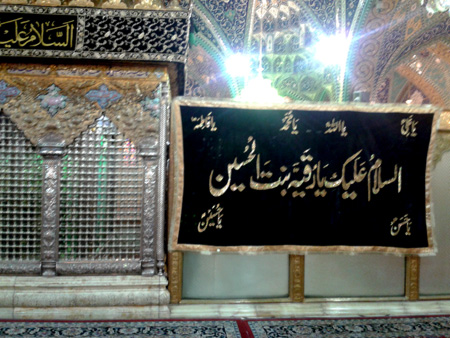 السلام علیک
یا علی یا الله یا محمد یا فاطمه
السلام علیک یا رقیة بنت الحسین
یا حسن یا حسین